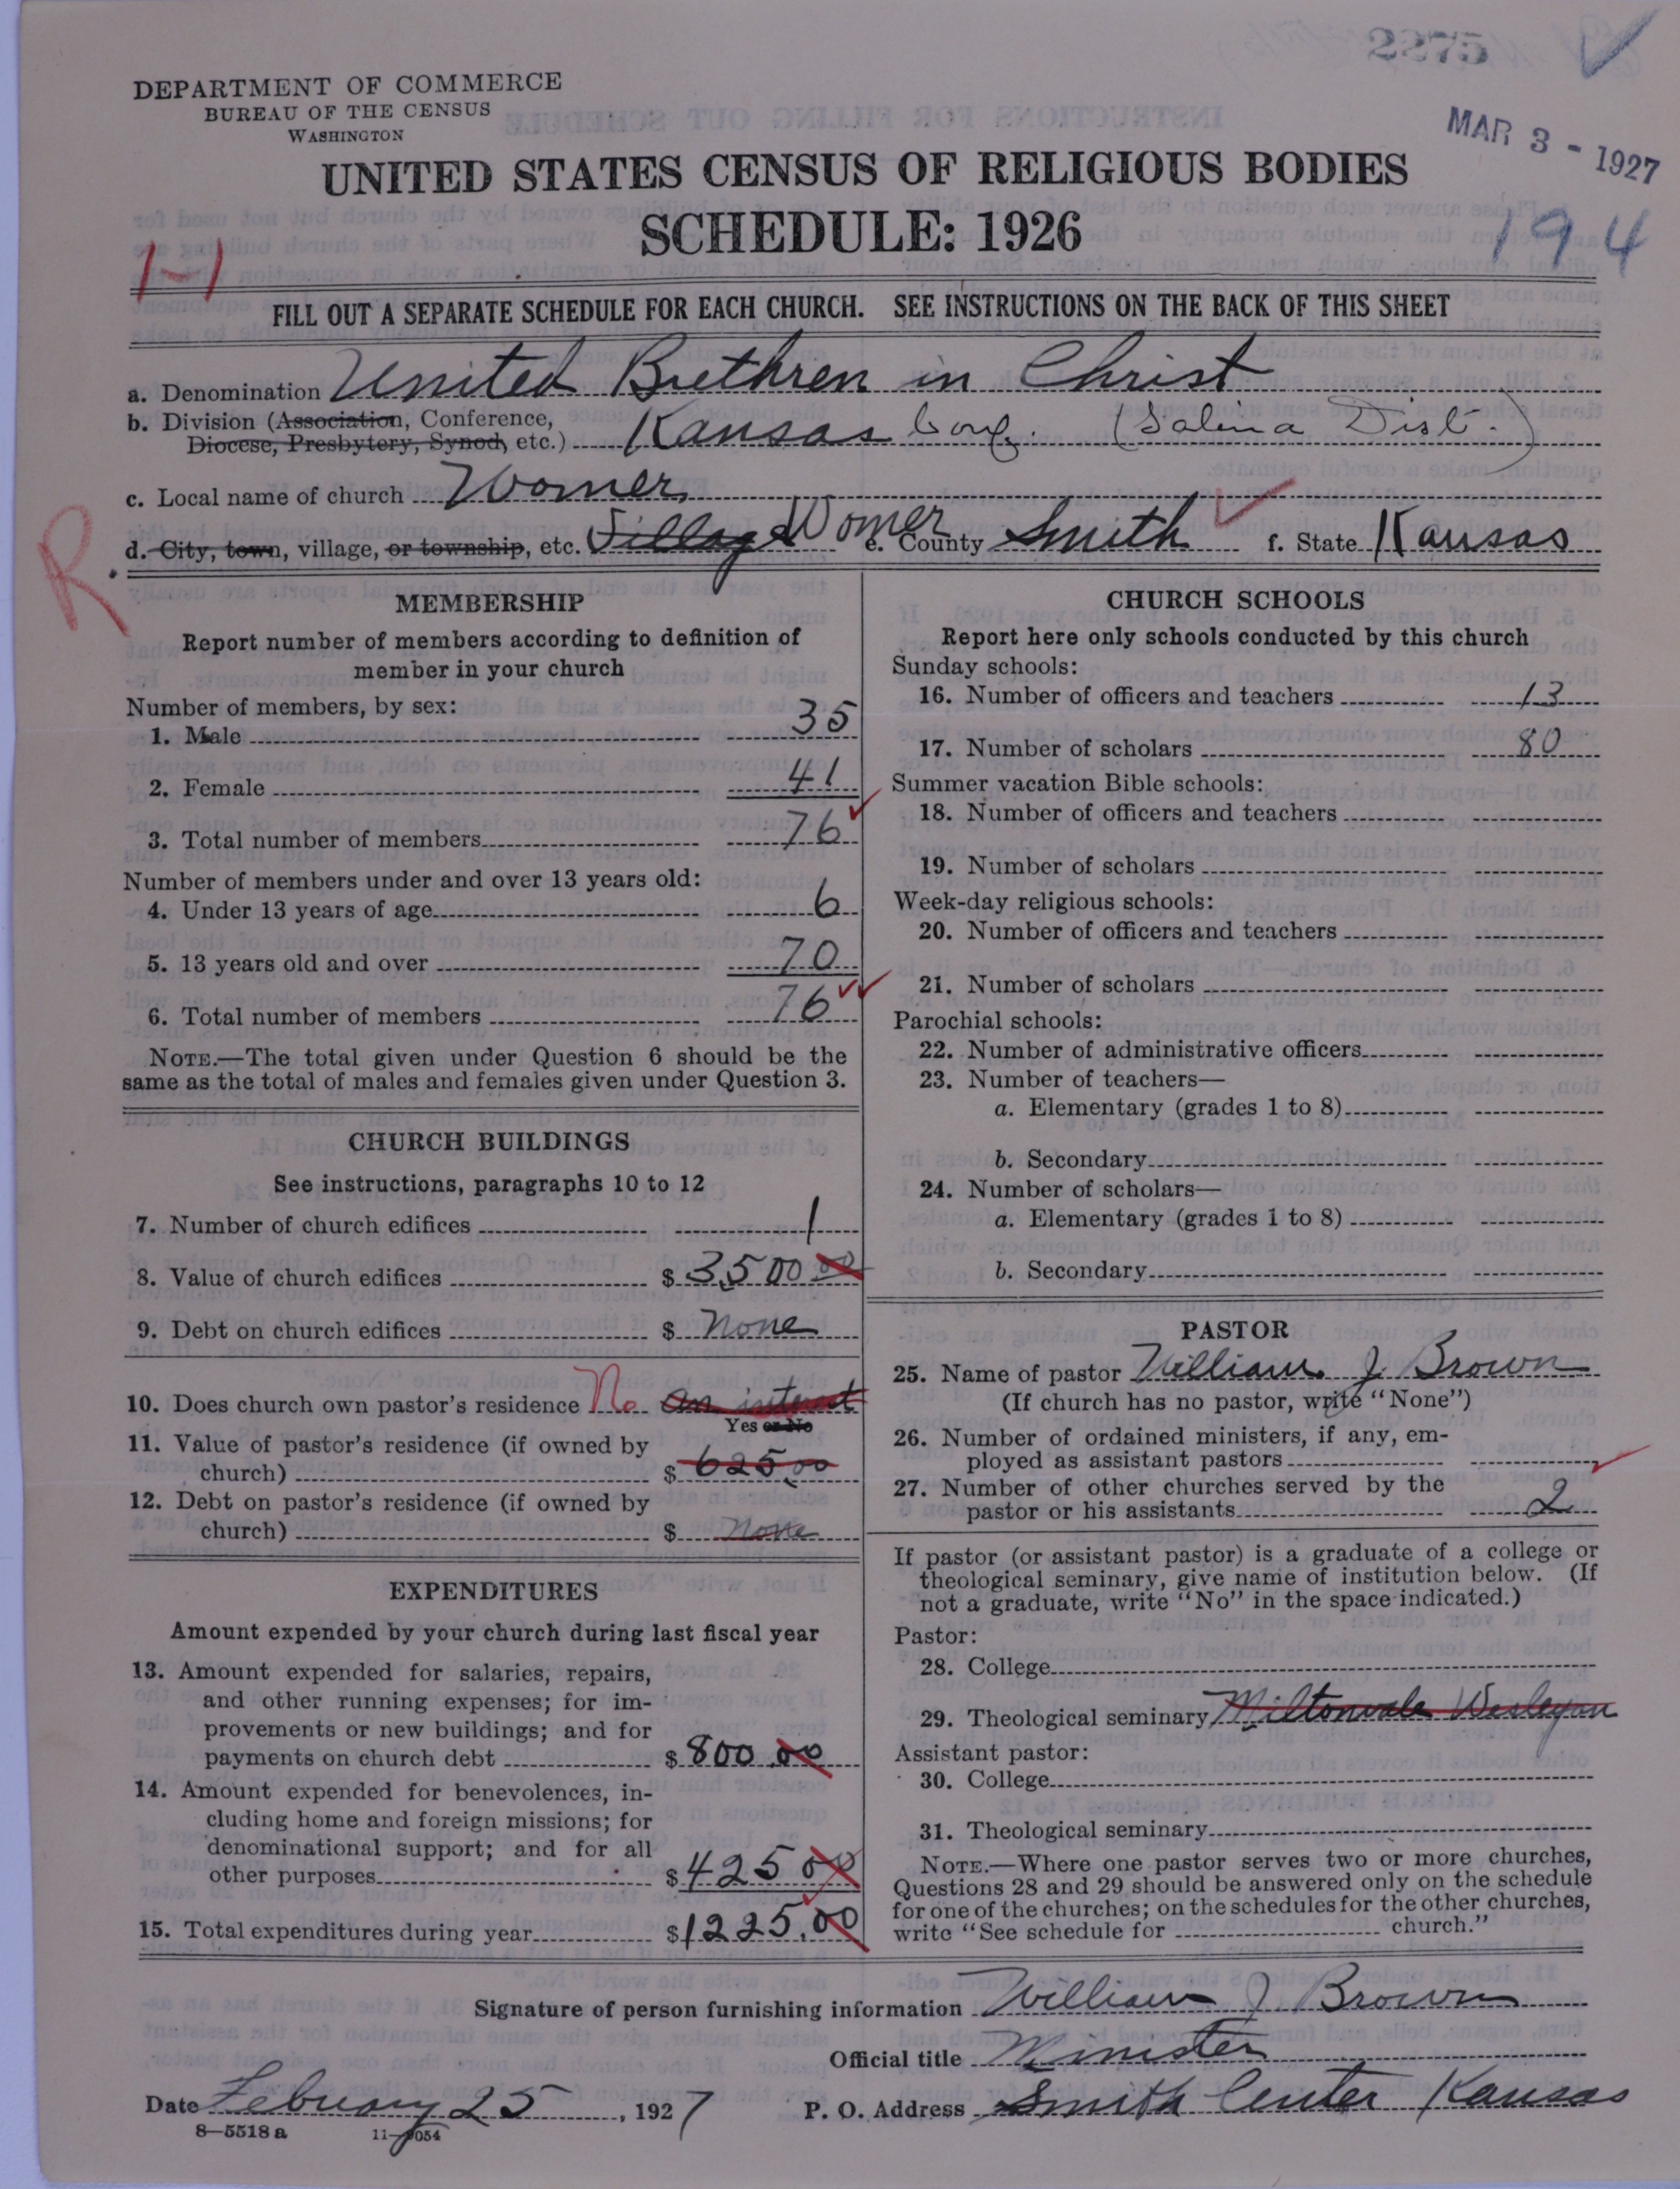 2275
DEPARTMENT OF COMMERCE
BUREAU OF THE CENSUS
WASHINGTON
MAR 3 - 1927
UNITED STATES CENSUS OF RELIGIOUS BODIES
SCHEDULE: 1926
194
FILL OUT A SEPARATE SCHEDULE FOR EACH CHURCH. SEE INSTRUCTIONS ON THE BACK OF THIS SHEET
a. Denomination United Brethren in Christ
b. Division (Association, Conference,
Diocese, Presbytery, Synod, etc.) Kansas Conf. (Salina Dist.)
c. Local name of church Womer
d. City, town, village, or township, etc. Village Womer e. County Smith f. State Kansas
R.
MEMBERSHIP
Report number of members according to definition of
member in your church
Number of members, by sex:
1. Male 35
2. Female 41
3. Total number of members 76
Number of members under and over 13 years old:
4. Under 13 years of age 6
5. 13 years old and over 70
6. Total number of members 76
NOTE.—The total given under Question 6 should be the
same as the total of males and females given under Question 3.
CHURCH BUILDINGS
See instructions, paragraphs 10 to 12
7. Number of church edifices 1
8. Value of church edifices $ 3,500 00
9. Debt on church edifices $ None
10. Does church own pastor's residence No an interest
Yes or No
11. Value of pastor's residence (if owned by
church) $ 625.00
12. Debt on pastor's residence (if owned by
church) $ None
EXPENDITURES
Amount expended by your church during last fiscal year
13. Amount expended for salaries, repairs,
and other running expenses; for im-
provements or new buildings; and for
payments on church debt $ 800.00
14. Amount expended for benevolences, in-
cluding home and foreign missions; for
denominational support; and for all
other purposes $ 425 00
15. Total expenditures during year $ 1225.00
CHURCH SCHOOLS
Report here only schools conducted by this church
Sunday schools:
16. Number of officers and teachers 13
17. Number of scholars 80
Summer vacation Bible schools:
18. Number of officers and teachers
19. Number of scholars
Week-day religious schools:
20. Number of officers and teachers
21. Number of scholars
Parochial schools:
22. Number of administrative officers
23. Number of teachers—
a. Elementary (grades 1 to 8)
b. Secondary
24. Number of scholars—
a. Elementary (grades 1 to 8)
b. Secondary
PASTOR
25. Name of pastor William J Brown
(If church has no pastor, write "None")
26. Number of ordained ministers, if any, em-
ployed as assistant pastors
27. Number of other churches served by the
pastor or his assistants 2
If pastor (or assistant pastor) is a graduate of a college or
theological seminary, give name of institution below. (If
not a graduate, write "No" in the space indicated.)
Pastor:
28. College
29. Theological seminary Miltonvale Wesleyan
Assistant pastor:
30. College
31. Theological seminary
NOTE.—Where one pastor serves two or more churches,
Questions 28 and 29 should be answered only on the schedule
for one of the churches; on the schedules for the other churches,
write "See schedule for church."
Signature of person furnishing information William J Brown
Official title Minister
Date February 25, 1927 P. O. Address Smith Center Kansas
8—5518 a 11—9054